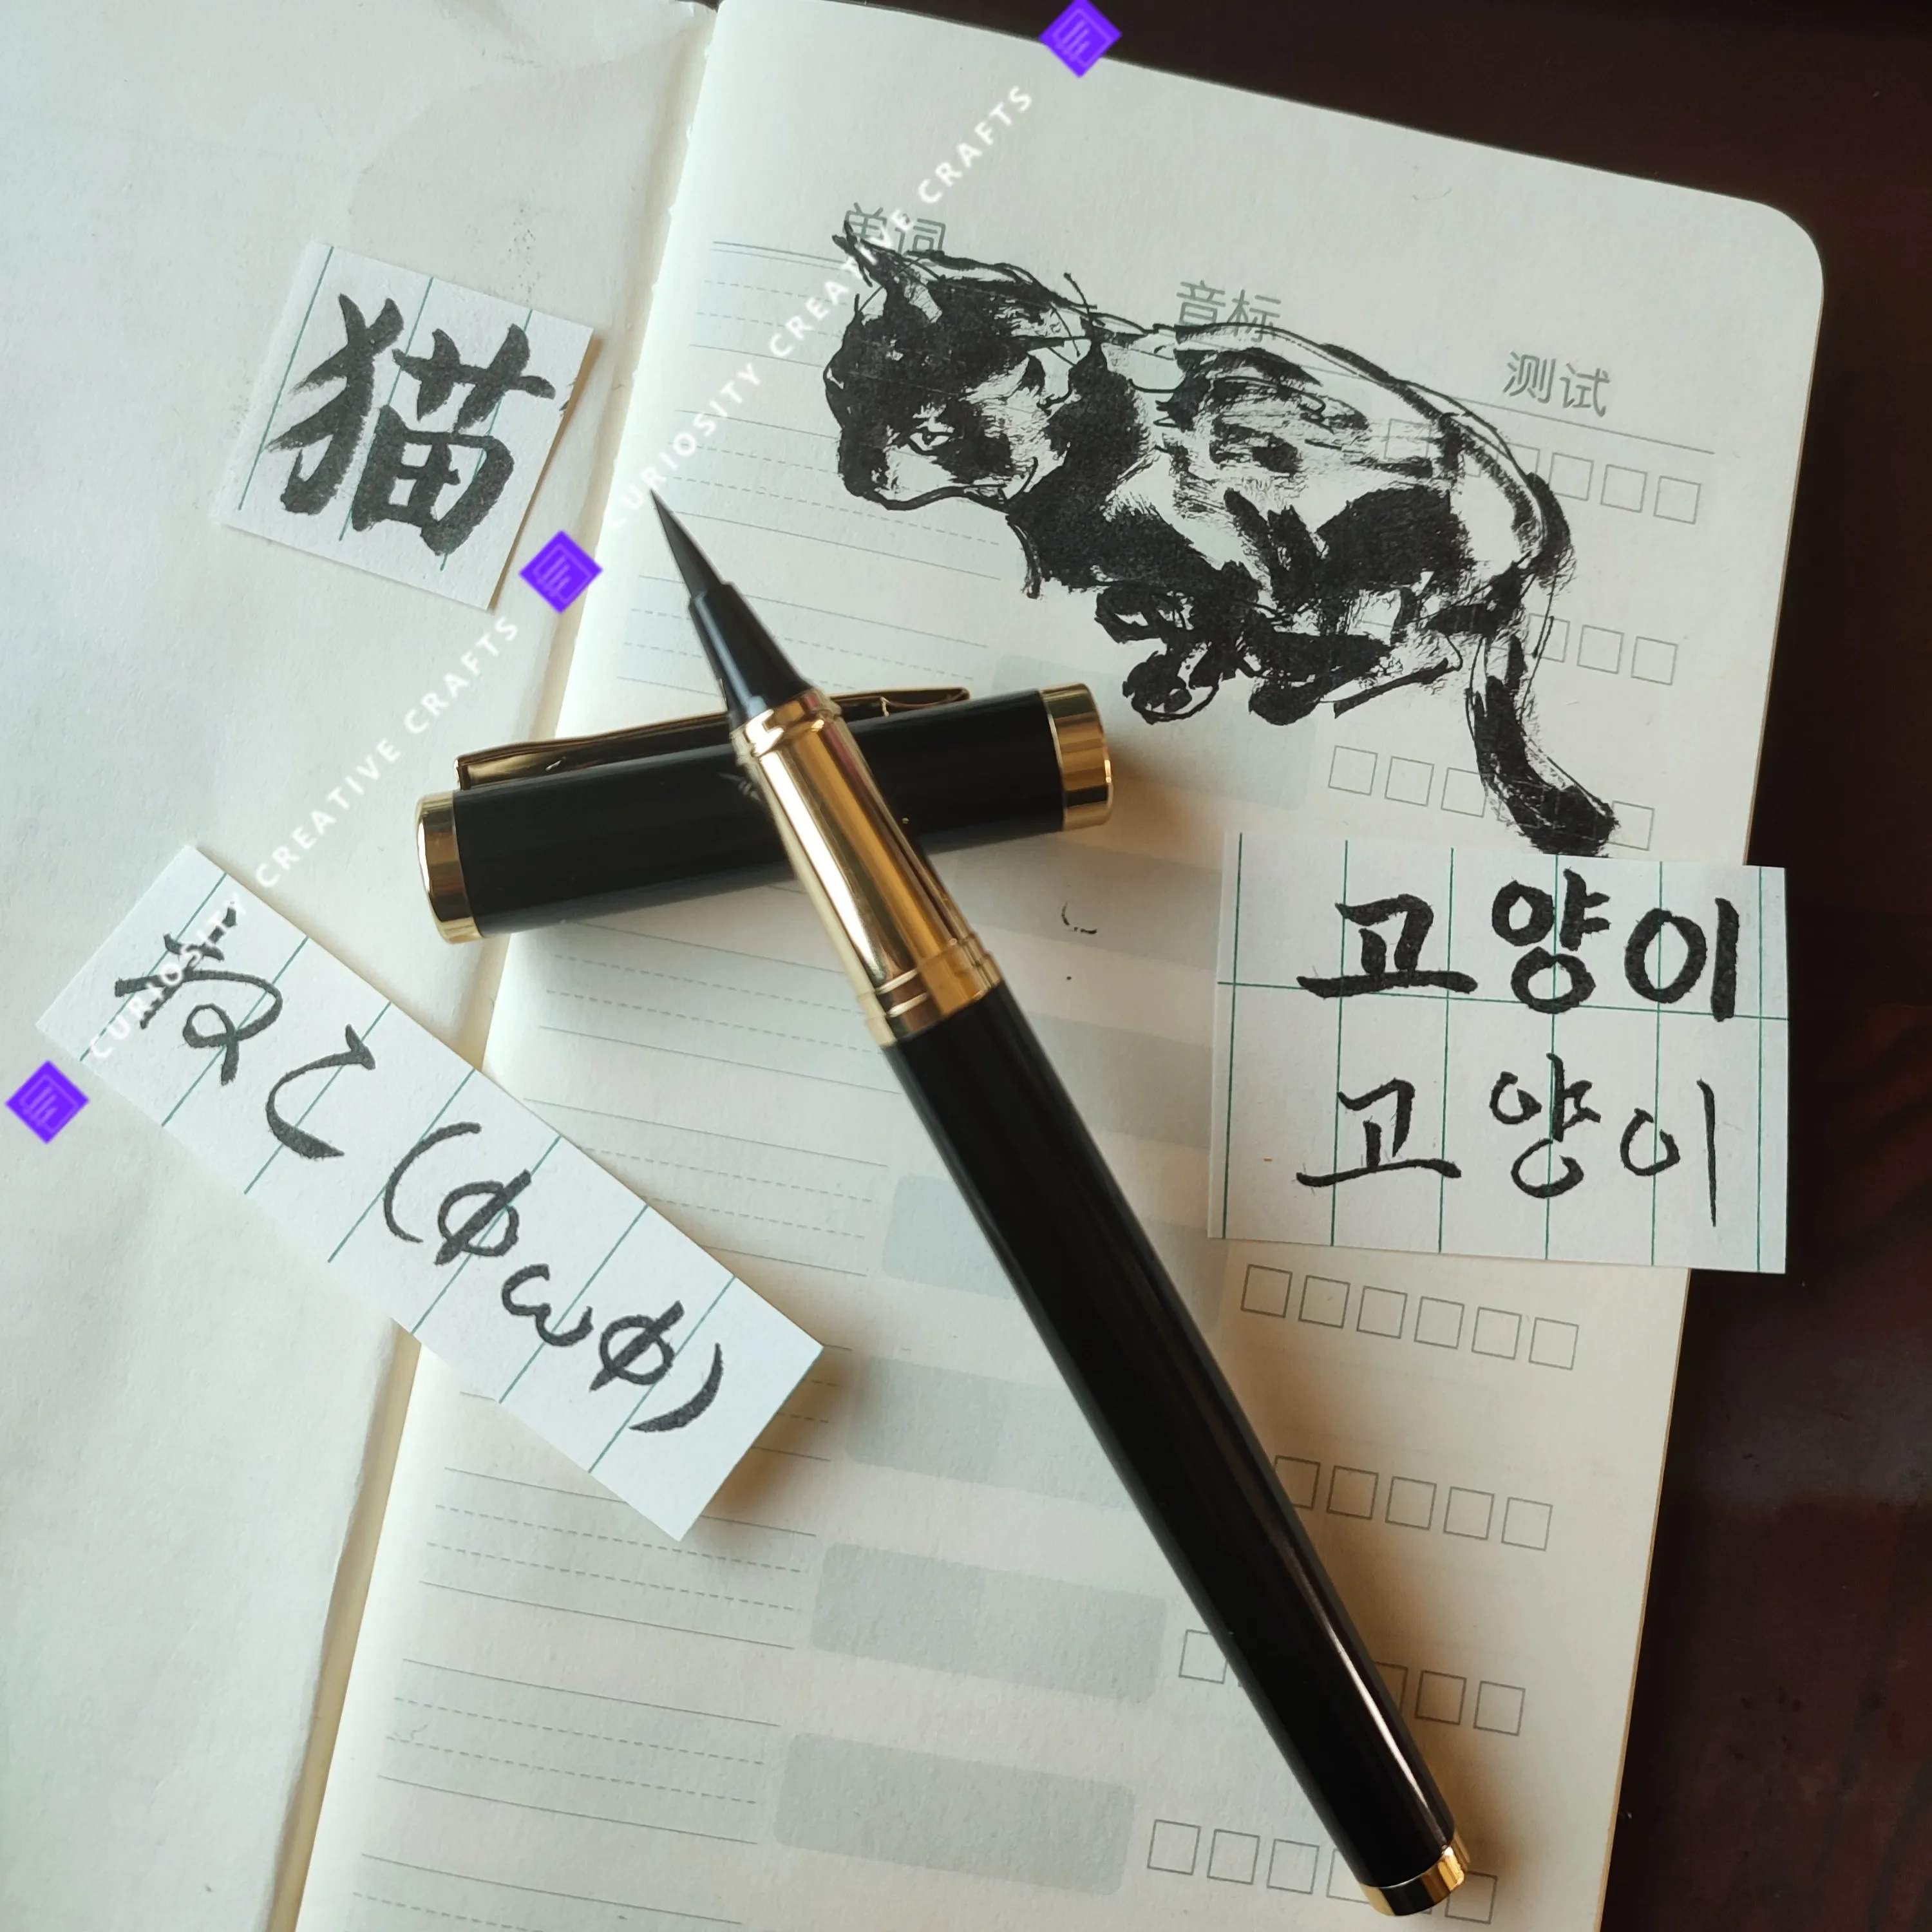 单词 音标 测试
猫
ねこ(ΦωΦ)
고양이
고양이
CURIOSITY CREATIVE CRAFTS
CURIOSITY CREATIVE CRAFTS